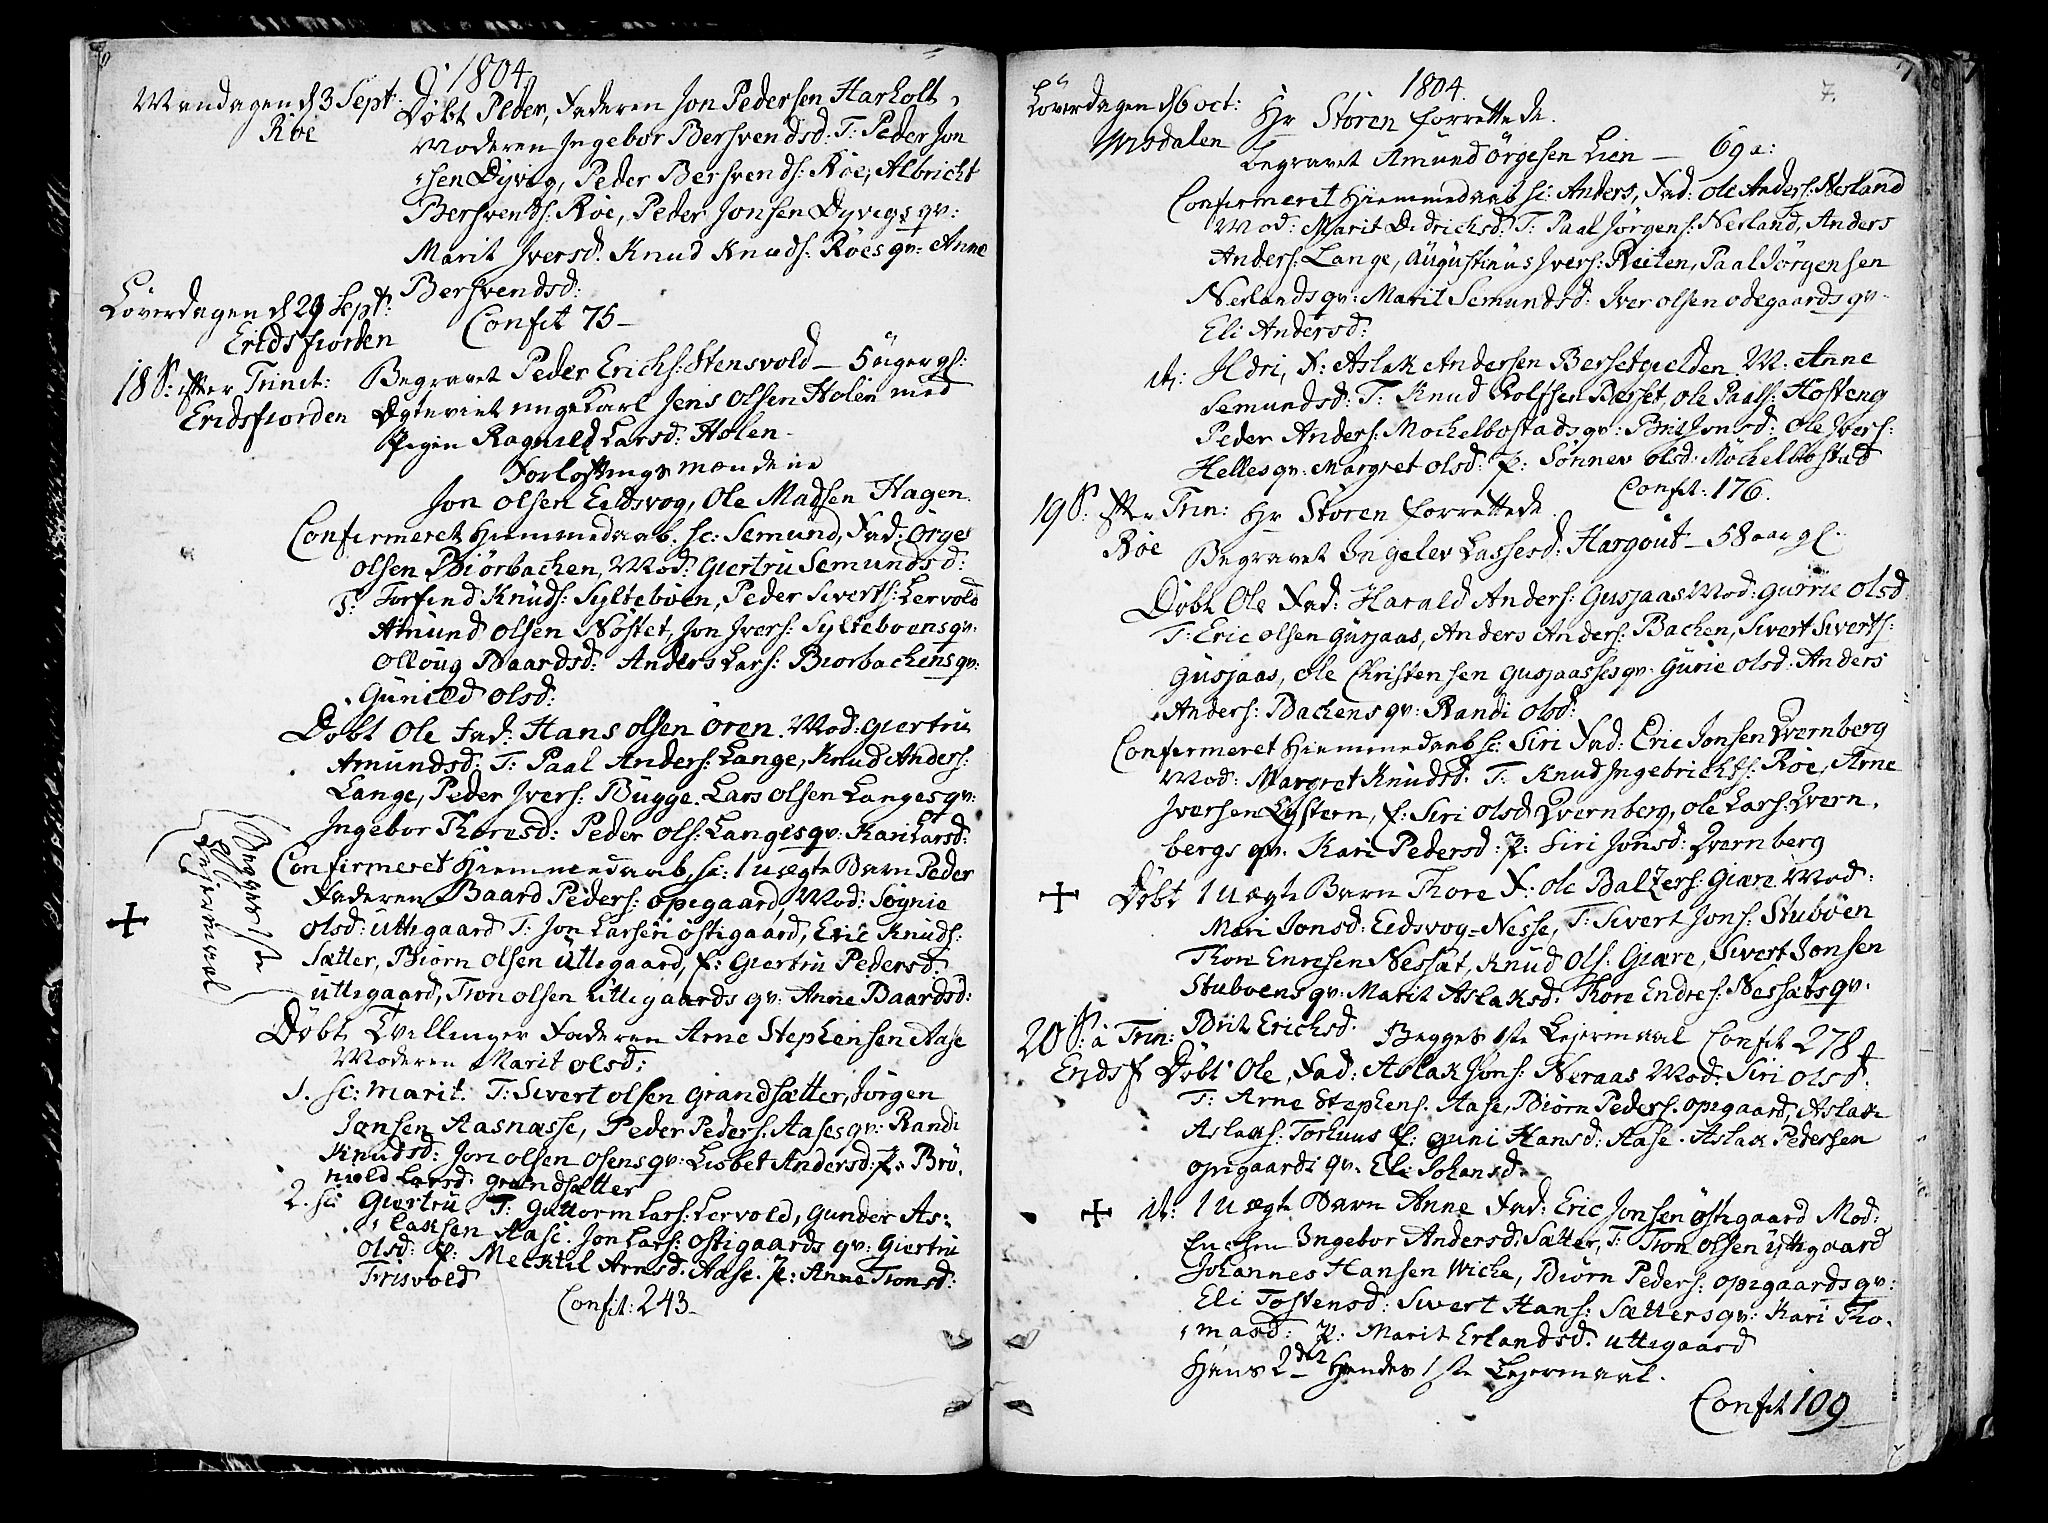 1804
Mandagen d 3 Sept: Døbt Peder, Faderen Jon Pedersen Harholt,
Røe Moderen Ingebor Bersvendsd: T: Peder Jon
sen Dyvig, Peder Bersvends: Røe, Albricht
Bersvends: Røe, Peder Jonsen Dyvigs qv:
Marit Iversd: Knud Knuds: Røes qv: Anne
Bersvendsd:
Løverdagen d 29 Sept: Confit 75
Eridsfiorden
18 S: efter Trinit: Begravet Peder Erichs: Stensvold – 5 uger gl:
Eridsfiorden Ægteviet unge Karl Jens Olsen Holen med
Pigen Ragnild Larsd: Holen
Forlovnings mændene
Jon Olsen Eidsvog, Ole Madsen Hagen.
Confirmeret Hiemmedaab. sc: Semund, Fad: Örges
olsen Biörbachen, Mod: Giertru Semundsd:
T: Torfind Knuds: Syltebøen, Peder Siverts: Lervold
Amund Olsen Nöstet, Jon Ivers: Syltebøens qv:
Olloug Baardsd: Anders Lars: Biorbachens qv:
Gunild olsd:
Døbt Ole Fad: Hans Olsen Ören. Mod: Giertru
Amundsd: T: Paal Anders: Lange, Knud Anders:
Lange, Peder Ivers: Bugge. Lars Olsen Langes qv:
Ingebor Thoresd: Peder Ols: Langes qv: Kari Larsd:
Confirmeret Hiemmedaab, sc: 1 uægte Barn Peder
Faderen Baard Peders: Opigaard, Mod: Sognie
Olsd: Uttigaard T: Jon Larsen Östigaard, Eric Knuds:
Sætter, Biörn Olsen Uttigaard, f: Giertru Pedersd:
Uttigaard, Tron Olsen Uttigaards qv: Anne Baardsd:
Begge 1ste
Leiermaal
Døbt Tvillinger Faderen Arne Stephensen Aase
Moderen Marit Olsd:
1. sc: Marit. T: Sivert Olsen Grandsætter, Jörgen
Jonsen Aasnæsse, Peder Peders: Aases qv: Randi
Knudsd: Jon Olsen Osens qv: Lisbet Andersd: p: Brö
nild Larsd: Grandsætter
2. sc: Giertru T: Guttorm Lars: Lervold, Gunder As:
laksen Aase. Jon Lars: Östigaards qv: Giertru
Olsd: p: Mechtil Arnsd. Aase. p: Anne Tronsd:
Frisvold
Confit: 243
7.
1804.
Løverdagen d 6 oct: Hr Stören forrettede.
Visdalen Begravet Amund Örgesen Lien – 69 a:
Confirmeret Hiemmedaab sc: Anders, Fad: Ole Anders: Nerland
Mod: Marit Didrichsd: T: Paal Jörgens: Nerland, Anders
Anders: Lange, Augustinus Ivers: Reiten, Paal Jörgensen
Nerlands qv: Marit Semundsd: Iver Olsen Ödegaards qv:
Eli Andersd:
it: Ildri, F: Aslak Andersen Bersetgielden M: Anne
Semundsd: T: Knud Rolfsen Berset, Ole Paals: Hosteng
Peder Anders: Mochelbostads qv: Brit Jonsd: Ole Ivers:
Helles qv: Margret Olsd: p: Sönnev Olsd: Möchelbostad
Confit: 176.
19 S: efter Trin: Hr Stören forrettede.
Røe Begravet Ingelev Lassesd: Hargout – 58 aar gl.
Døbt Ole Fad: Harald Anders: Gusjaas Mod: Gurrie Olsd.
T: Eric Olsen Gusjaas, Anders Anders: Bachen, Sivert Siverts:
Gusjaas, Ole Christensen Gusjaasses qv: Gurie Olsd: Anders
Anders: Bachens qv: Randi Olsd:
Confirmeret Hiemmedaab sc: Siri Fad: Eric Jonsen Qvernberg
Mod: Margret Knudsd. T: Knud Ingebrichts: Røe, Arne
Iversen Lystern, f: Siri Olsd Qvernberg, Ole Lars: Qvern.
bergs qv: Kari Pedersd: p: Siri Jonsd: Qvernberg
Døbt 1 uægte Barn Thore F: Ole Baltzers: Giære Mod:
Mari Jonsd: Eidsvog-Nesse, T: Sivert Jons: Stubøen
Thore Enresen Nessæt, Knud Ols: Giære, Sivert Jonsen
Stuboens qv: Marit Aslaksd. Thore Endres: Nessæts qv:
Brit Erichsd. Begges 1ste Lejermaal Confit 278
20 S: a Trin: Døbt Ole, Fad: Aslak Jons: Neraas Mod: Siri Olsd:
Eridsf T: Arne Stephens. Aase, Biörn Peders. Opigaard, Aslak
Aslaks: Torhuus f: Guni Hansd: Aase. Aslak Pedersen
Opigaards qv. Eli Johansd.
it: 1 uægte Barn Anne Fad: Eric Jonsen Östigaard Mod:
Ingebor Andersd: Sætter, T: Tron Olsen Yttigaard
Johannes Hansen Wiche, Biörn Peders: Opigaards qv:
Eli Tostensd: Sivert Hans: Sætters qv: Kari Tho
masd: p: Marit Erlandsd. Uttigaard
Hans 2den Hendes 1ste Lejermaal.
Confit 109